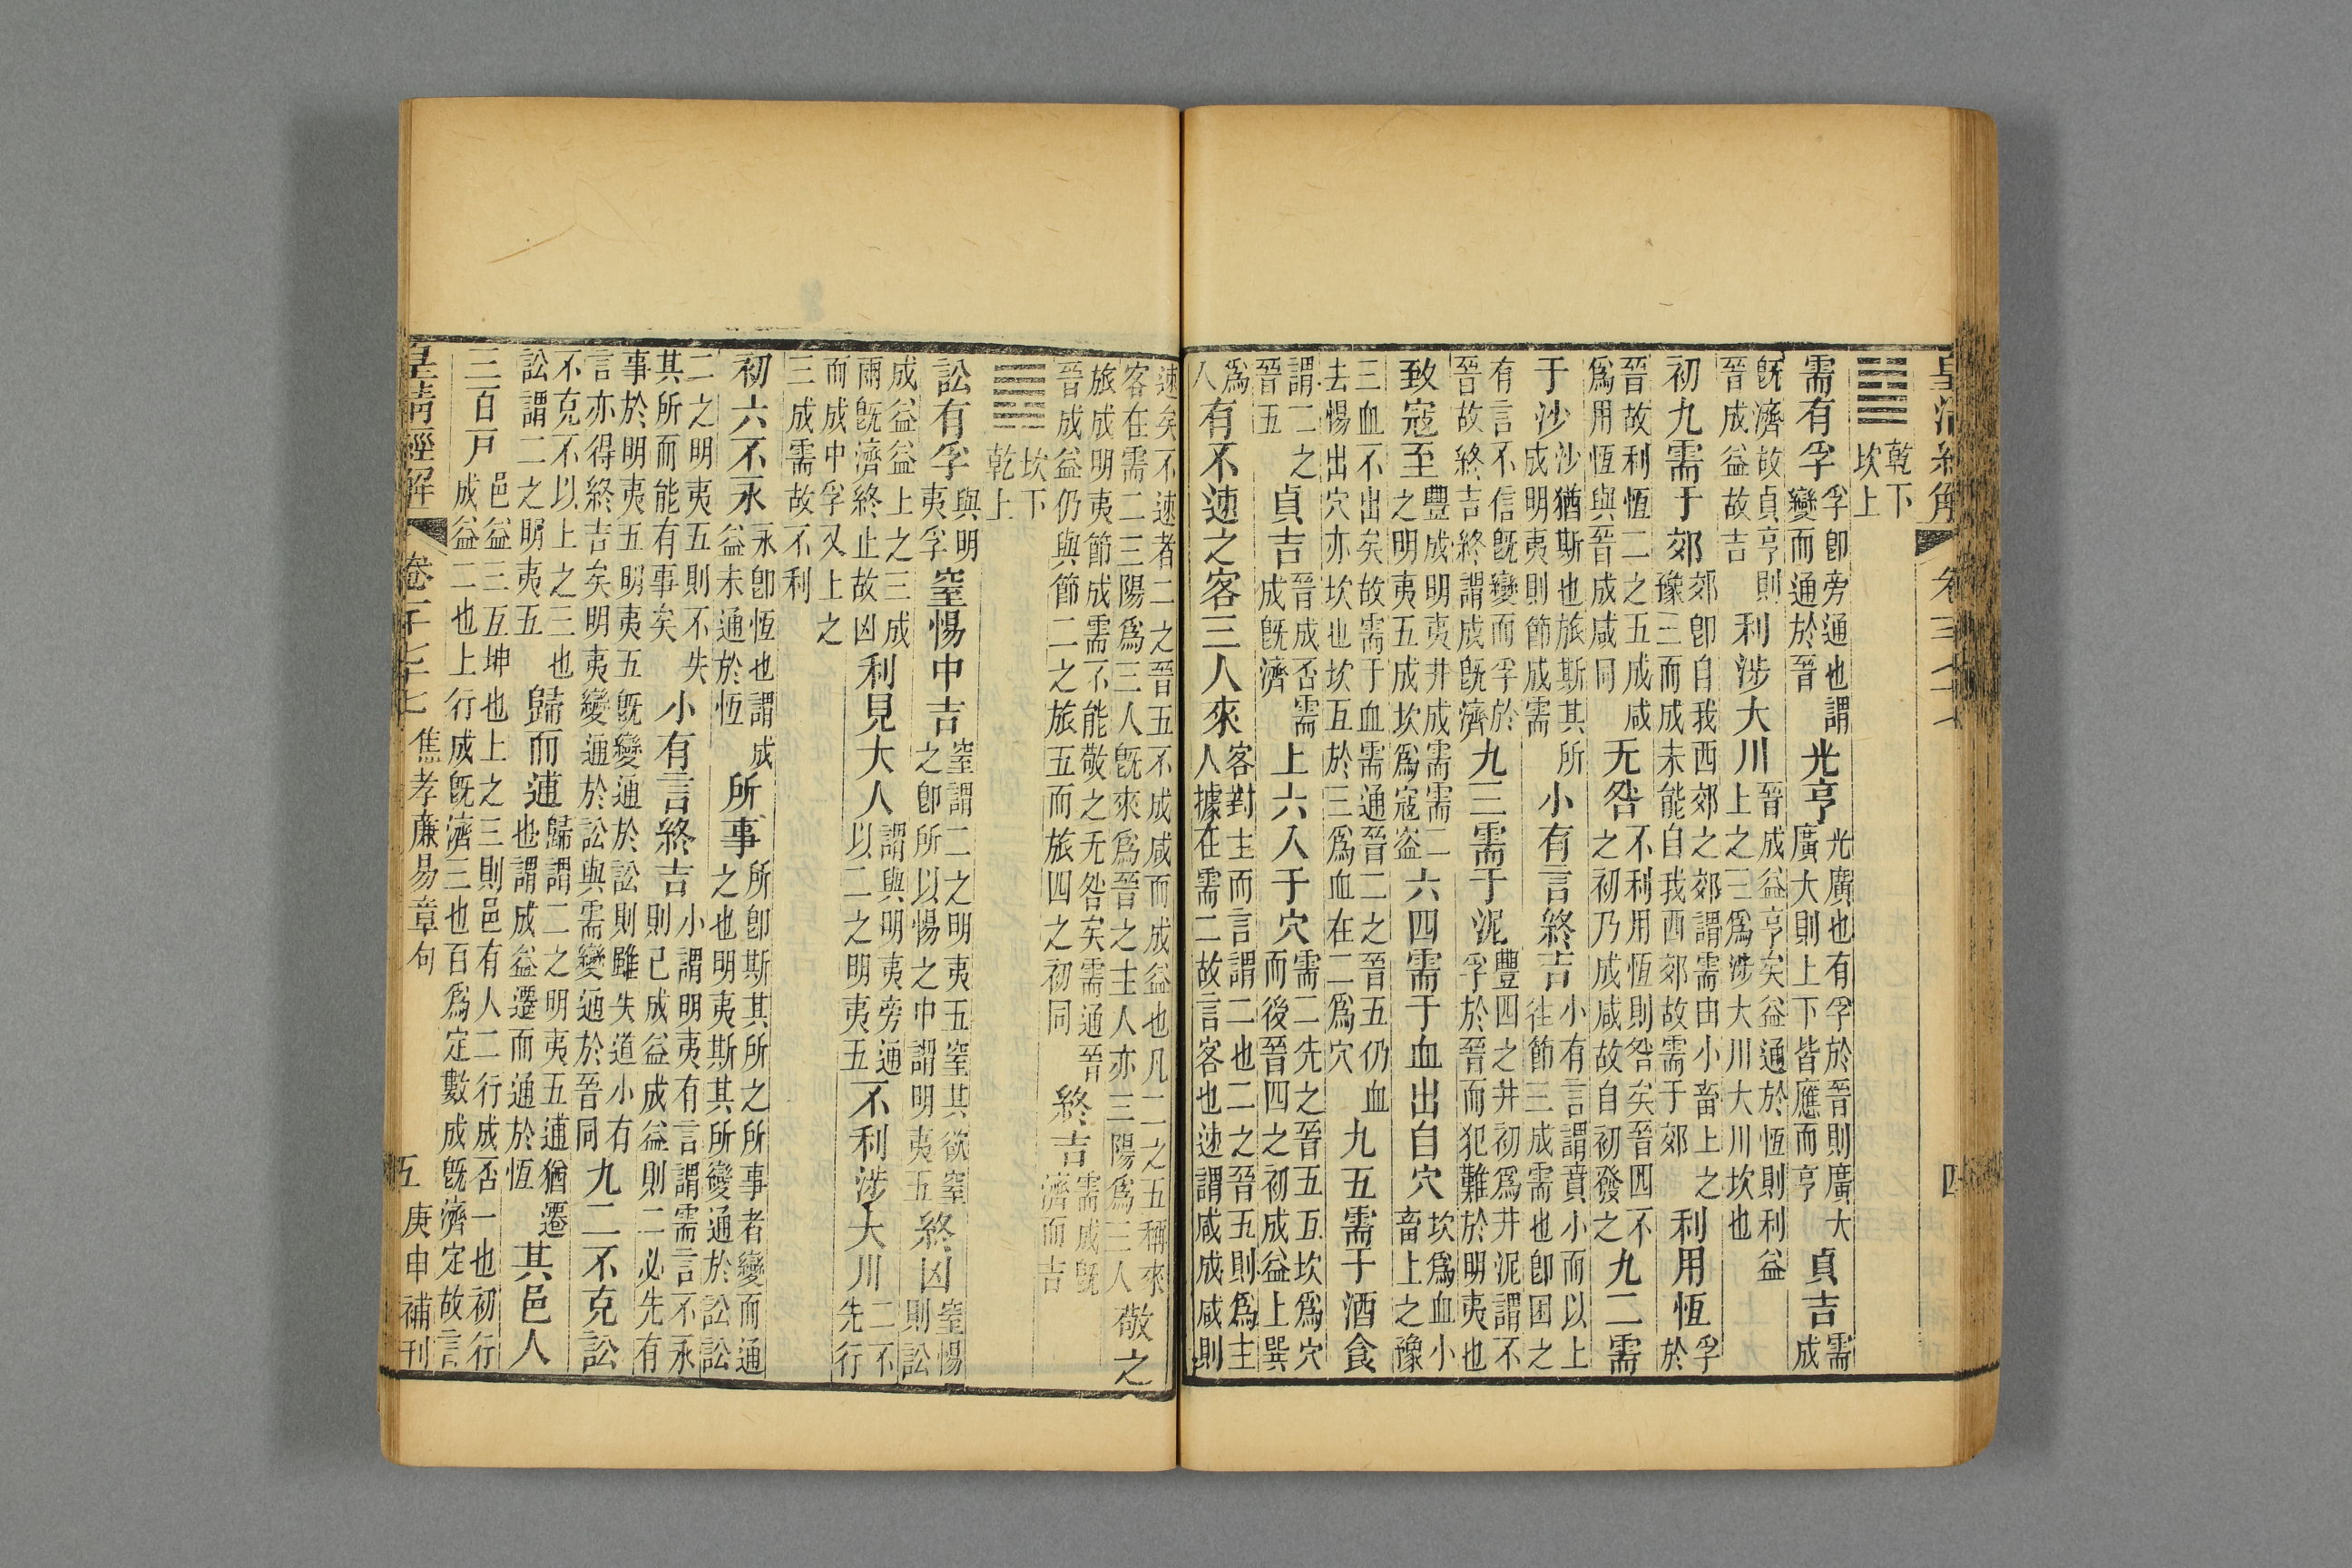 皇清經解 卷一千七十七 四
䷄ 乾下坎上
需有孚 孚卽旁通也謂變而通於晉 光亨 光廣也有孚於晉則廣大廣大則上下皆應而亨 貞吉 需成
旣濟故貞亨則晉成益故吉 利涉大川 晉成益亨矣益通於恆則利益上之三爲涉大川大川坎也
初九需于郊 郊卽自我西郊之郊謂需由小畜上之豫三而成未能自我西郊故需于郊 利用恆 孚於
晉故利恆二之五成咸爲用恆與晉成咸同 无咎 不利用恆則咎矣晉四不之初乃成咸故自初發之 九二需
于沙 沙猶斯也旅斯其所成明夷則節成需 小有言終吉 小有言謂賁小而以上往節三成需也卽困之
有言不信旣變而孚於晉故終吉終謂成旣濟 九三需于泥 豐四之井初爲井泥謂不孚於晉而犯難於明夷也
致寇至 豐成明夷井成需需二之明夷五成坎爲寇盜 六四需于血出自穴 坎爲血小畜上之豫
三血不出矣故需于血需通晉二之晉五仍血去惕出穴亦坎也坎五於三爲血在二爲穴 九五需于酒食
謂二之晉五 貞吉 晉成否需成旣濟 上六入于穴 需二先之晉五五坎爲穴而後晉四之初成益上巽
爲入 有不速之客三人來 客對主而言謂二也二之晉五則爲主人據在需二故言客也速謂咸成咸則
速矣不速者二之晉五不成咸而成益也凡二之五稱來客在需二三陽爲三人旣來爲晉之主人亦三陽爲三人 敬之
旅成明夷節成需不能敬之无咎矣需通晉晉成益仍與節二之旅五而旅四之初同 終吉 需成旣濟而吉
䷅ 坎下乾上
訟有孚 與明夷孚 窒惕中吉 窒謂二之明夷五窒其欲窒之卽所以惕之中謂明夷五 終凶 窒惕則訟
成益益上之三成兩旣濟終止故凶 利見大人 謂與明夷旁通以二之明夷五 不利涉大川 二不先行
而成中孚又上之三成需故不利
初六不永 永卽恆也謂成益未通於恆 所事 所卽斯其所之所事者變而通之也明夷斯其所變通於訟訟
二之明夷五則不失其所而能有事矣 小有言終吉 小謂明夷有言謂需言不永則已成益成益則二必先有
事於明夷五明夷五旣變通於訟則雖失道小有言亦得終吉矣明夷變通於訟與需變通於晉同 九二不克訟
不克不以上之三也訟謂二之明夷五 歸而逋 歸謂二之明夷五逋猶遷也謂成益遷而通於恆 其邑人
三百戶 邑益三互坤也上之三則邑有人二行成否一也初行成益二也上行成旣濟三也百爲定數成旣濟定故言
皇清經解 卷一千七十七 焦孝廉易章句 五 庚申補刊